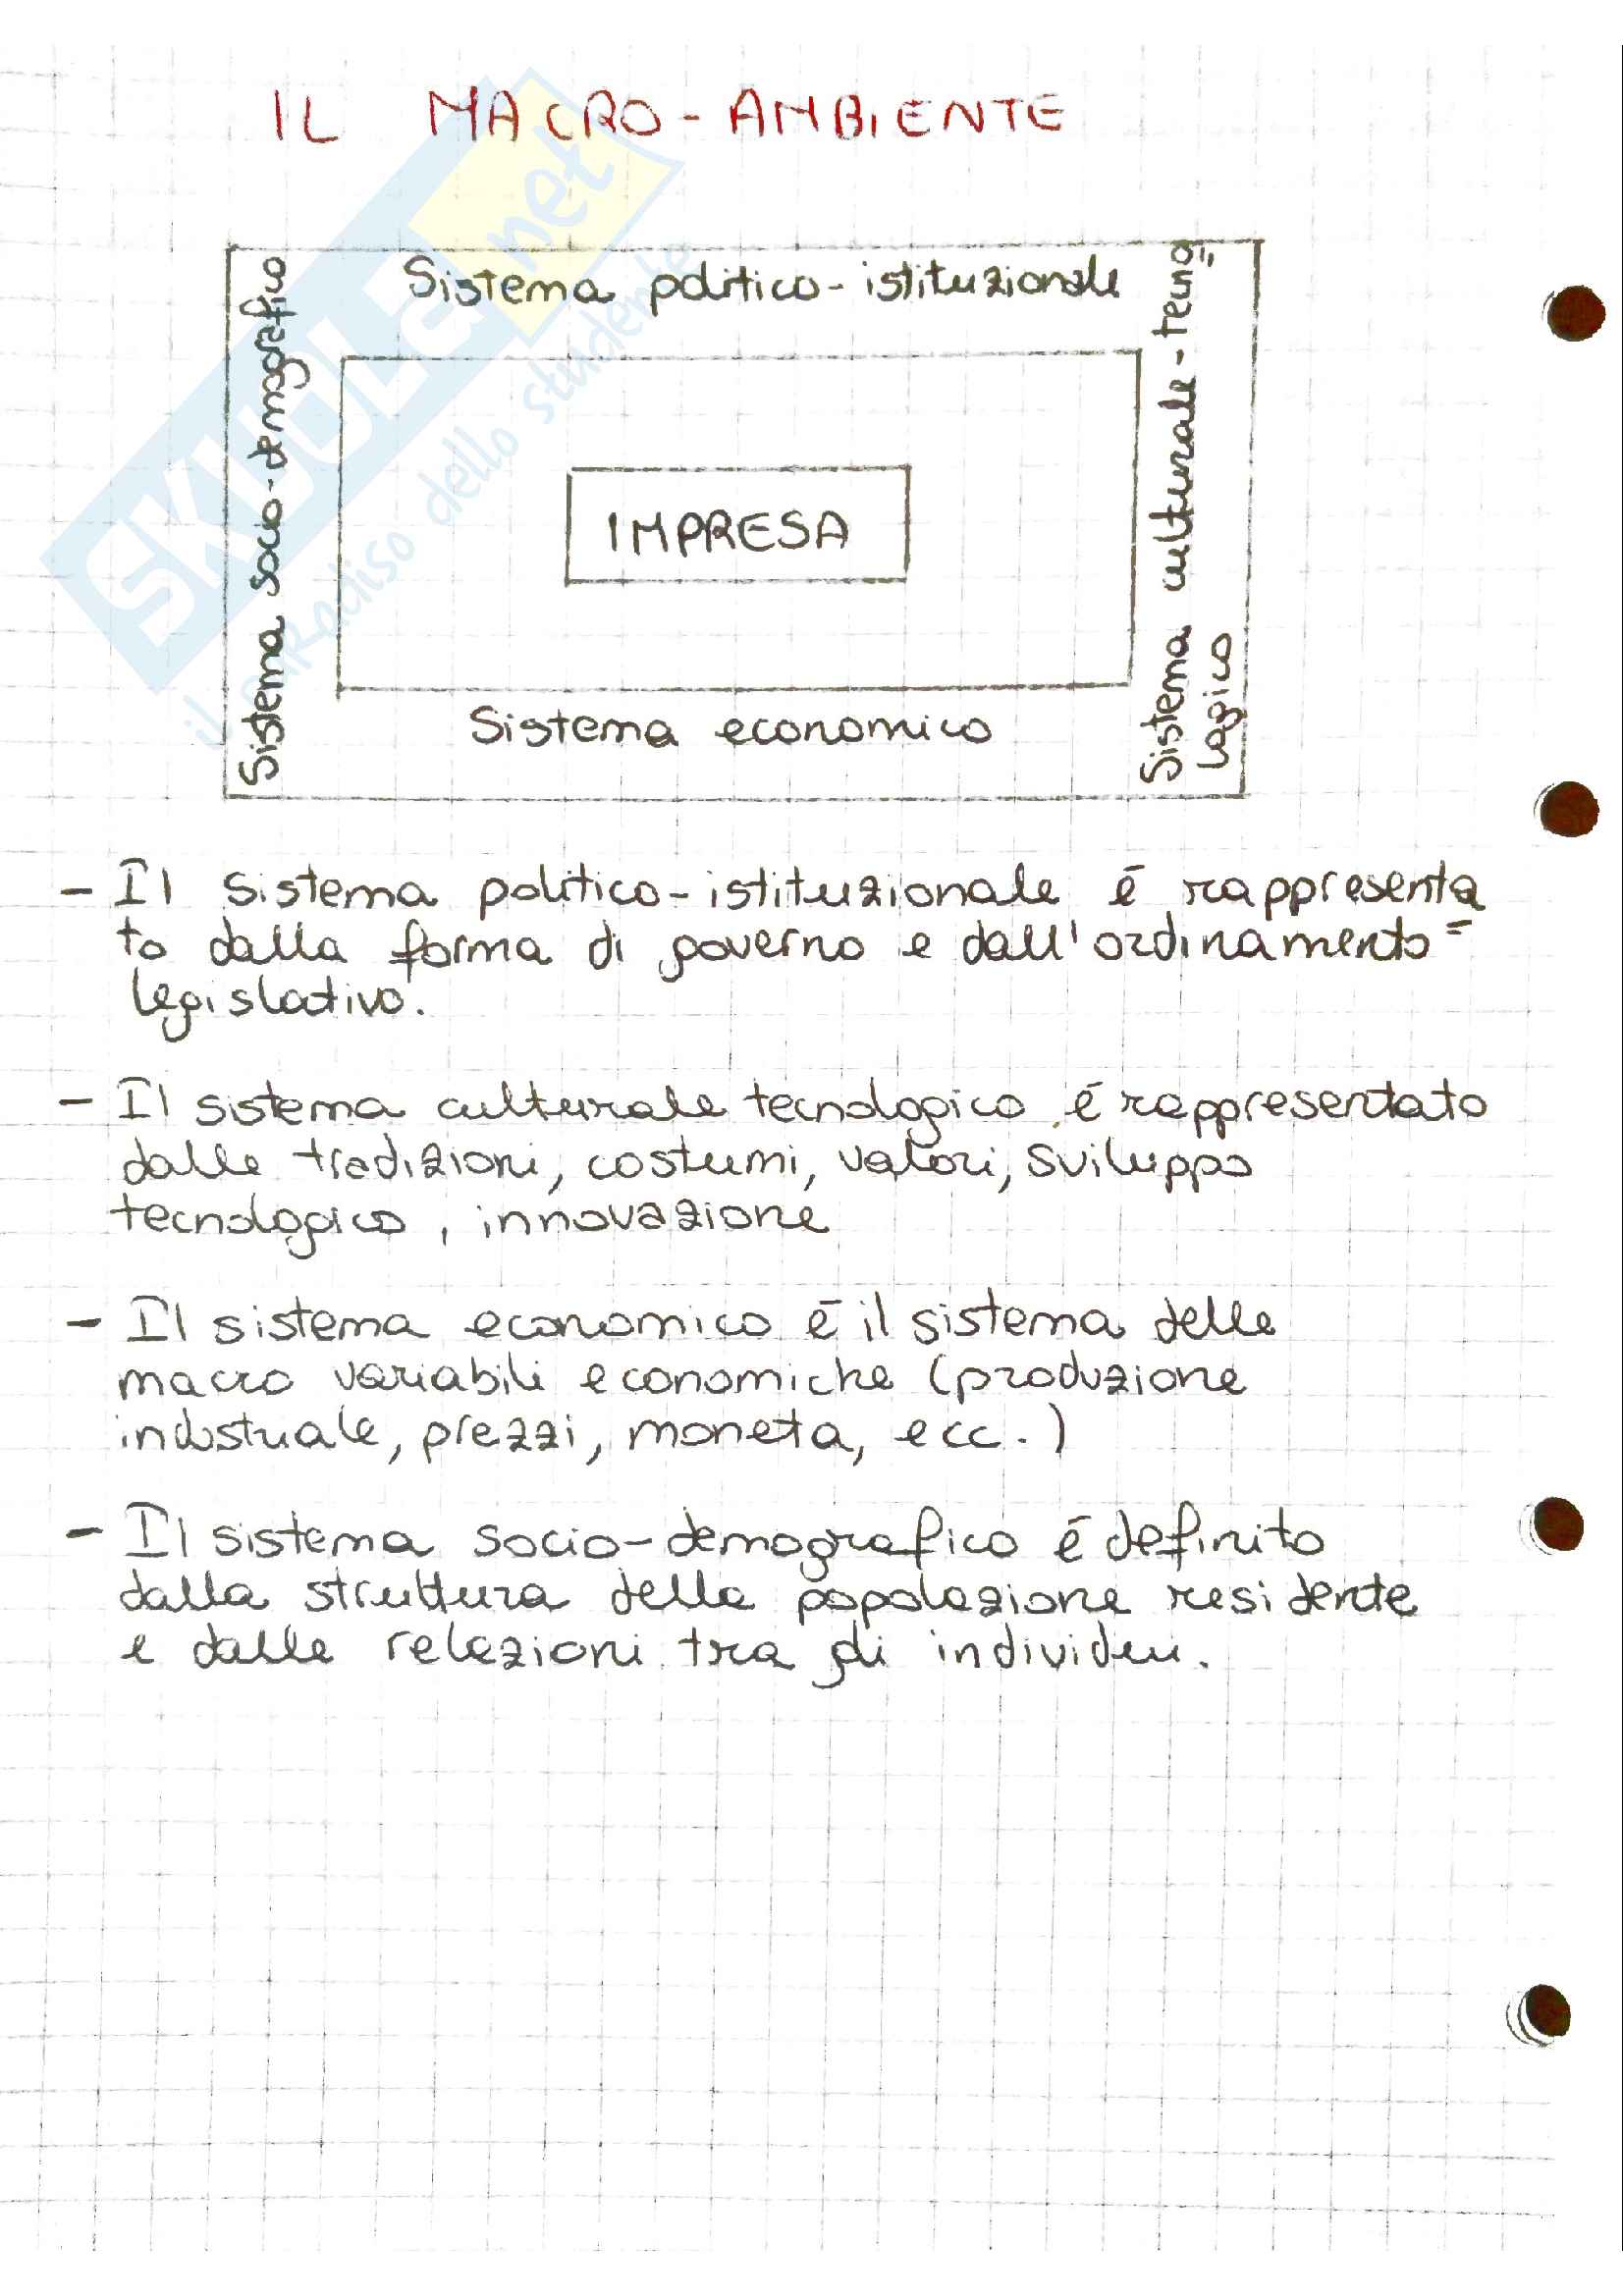 IL MACRO-AMBIENTE
Sistema politico-istituzionale
Sistema socio-demografico
IMPRESA
Sistema culturale-tecno=
logico
Sistema economico
- Il sistema politico-istituzionale é rappresenta=
to dalla forma di governo e dall'ordinamento
legislativo.
- Il sistema culturale tecnologico é rappresentato
dalle tradizioni, costumi, valori, sviluppo
tecnologico, innovazione
- Il sistema economico é il sistema delle
macro variabili economiche (produzione
industriale, prezzi, moneta, ecc.)
- Il sistema socio-demografico é definito
dalla struttura della popolazione residente
e dalle relazioni tra gli individui.
SKUOLA.net
il paradiso dello studente